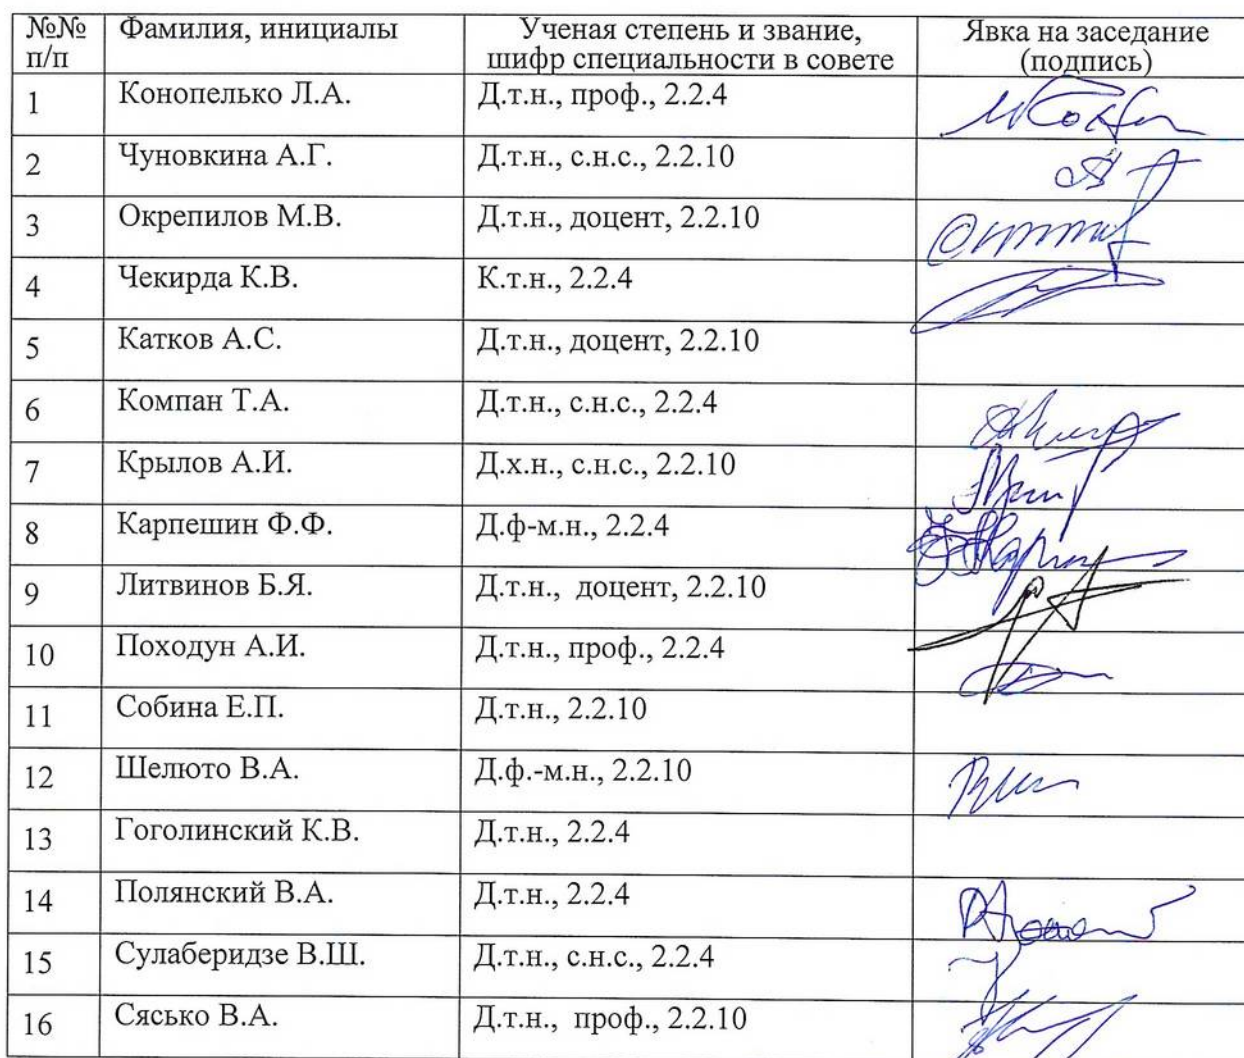 №№ Фамилия, инициалы Ученая степень и звание, Явка на заседание
п/п шифр специальности в совете (подпись)
1 Конопелько Л.А. Д.т.н., проф., 2.2.4
2 Чуновкина А.Г. Д.т.н., с.н.с., 2.2.10
3 Окрепилов М.В. Д.т.н., доцент, 2.2.10
4 Чекирда К.В. К.т.н., 2.2.4
5 Катков А.С. Д.т.н., доцент, 2.2.10
6 Компан Т.А. Д.т.н., с.н.с., 2.2.4
7 Крылов А.И. Д.х.н., с.н.с., 2.2.10
8 Карпешин Ф.Ф. Д.ф-м.н., 2.2.4
9 Литвинов Б.Я. Д.т.н., доцент, 2.2.10
10 Походун А.И. Д.т.н., проф., 2.2.4
11 Собина Е.П. Д.т.н., 2.2.10
12 Шелюто В.А. Д.ф.-м.н., 2.2.10
13 Гоголинский К.В. Д.т.н., 2.2.4
14 Полянский В.А. Д.т.н., 2.2.4
15 Сулаберидзе В.Ш. Д.т.н., с.н.с., 2.2.4
16 Сясько В.А. Д.т.н., проф., 2.2.10